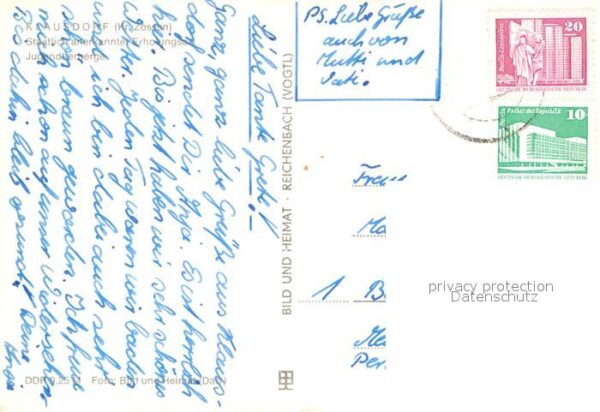 KLAUSDORF (Kr. Zossen)
Staatlich anerkannter Erholungsort
Jugendherberge
Liebe Tante Grete!
Ganz ganz liebe Grüße aus Klaus-
dorf sendet Dir Anja. Es ist herrlich
hier. Bis jetzt haben wir sehr schönes
Wetter. Jeden Tag waren wir baden
und ich bin dabei auch sehr
braun geworden. Ich freue
mich schon auf unser Wiedersehen.
Bis dahin bleib gesund! Deine
Anja
P.S. Liebe Grüße
auch von
Mutti und
Vati.
BILD UND HEIMAT · REICHENBACH (VOGTL)
DDR 0,25 M Foto: Bild und Heimat (Darr)
20
Berlin-Leninplatz
DEUTSCHE DEMOKRATISCHE REPUBLIK
10
Berlin, Palast der Republik
DEUTSCHE DEMOKRATISCHE REPUBLIK
1
privacy protection
Datenschutz